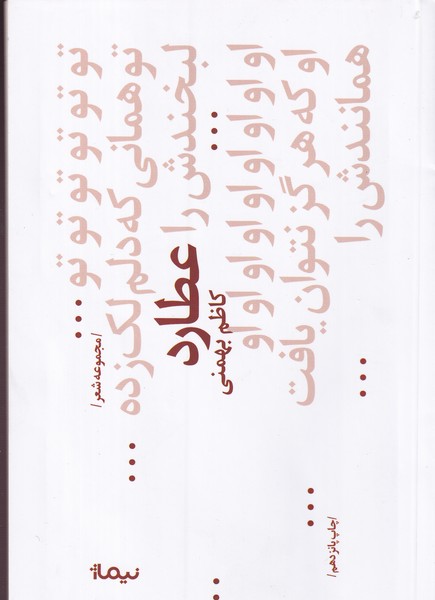 تو تو تو تو تو تو ...
/مجموعه شعر/
تو همانی که دلم لک زده ...
لبخندش را
عطارد
کاظم بهمنی
...
او او او او او او او او
او که هرگز نتوان یافت ...
همانندش را ...
/چاپ پانزدهم/
نیماژ